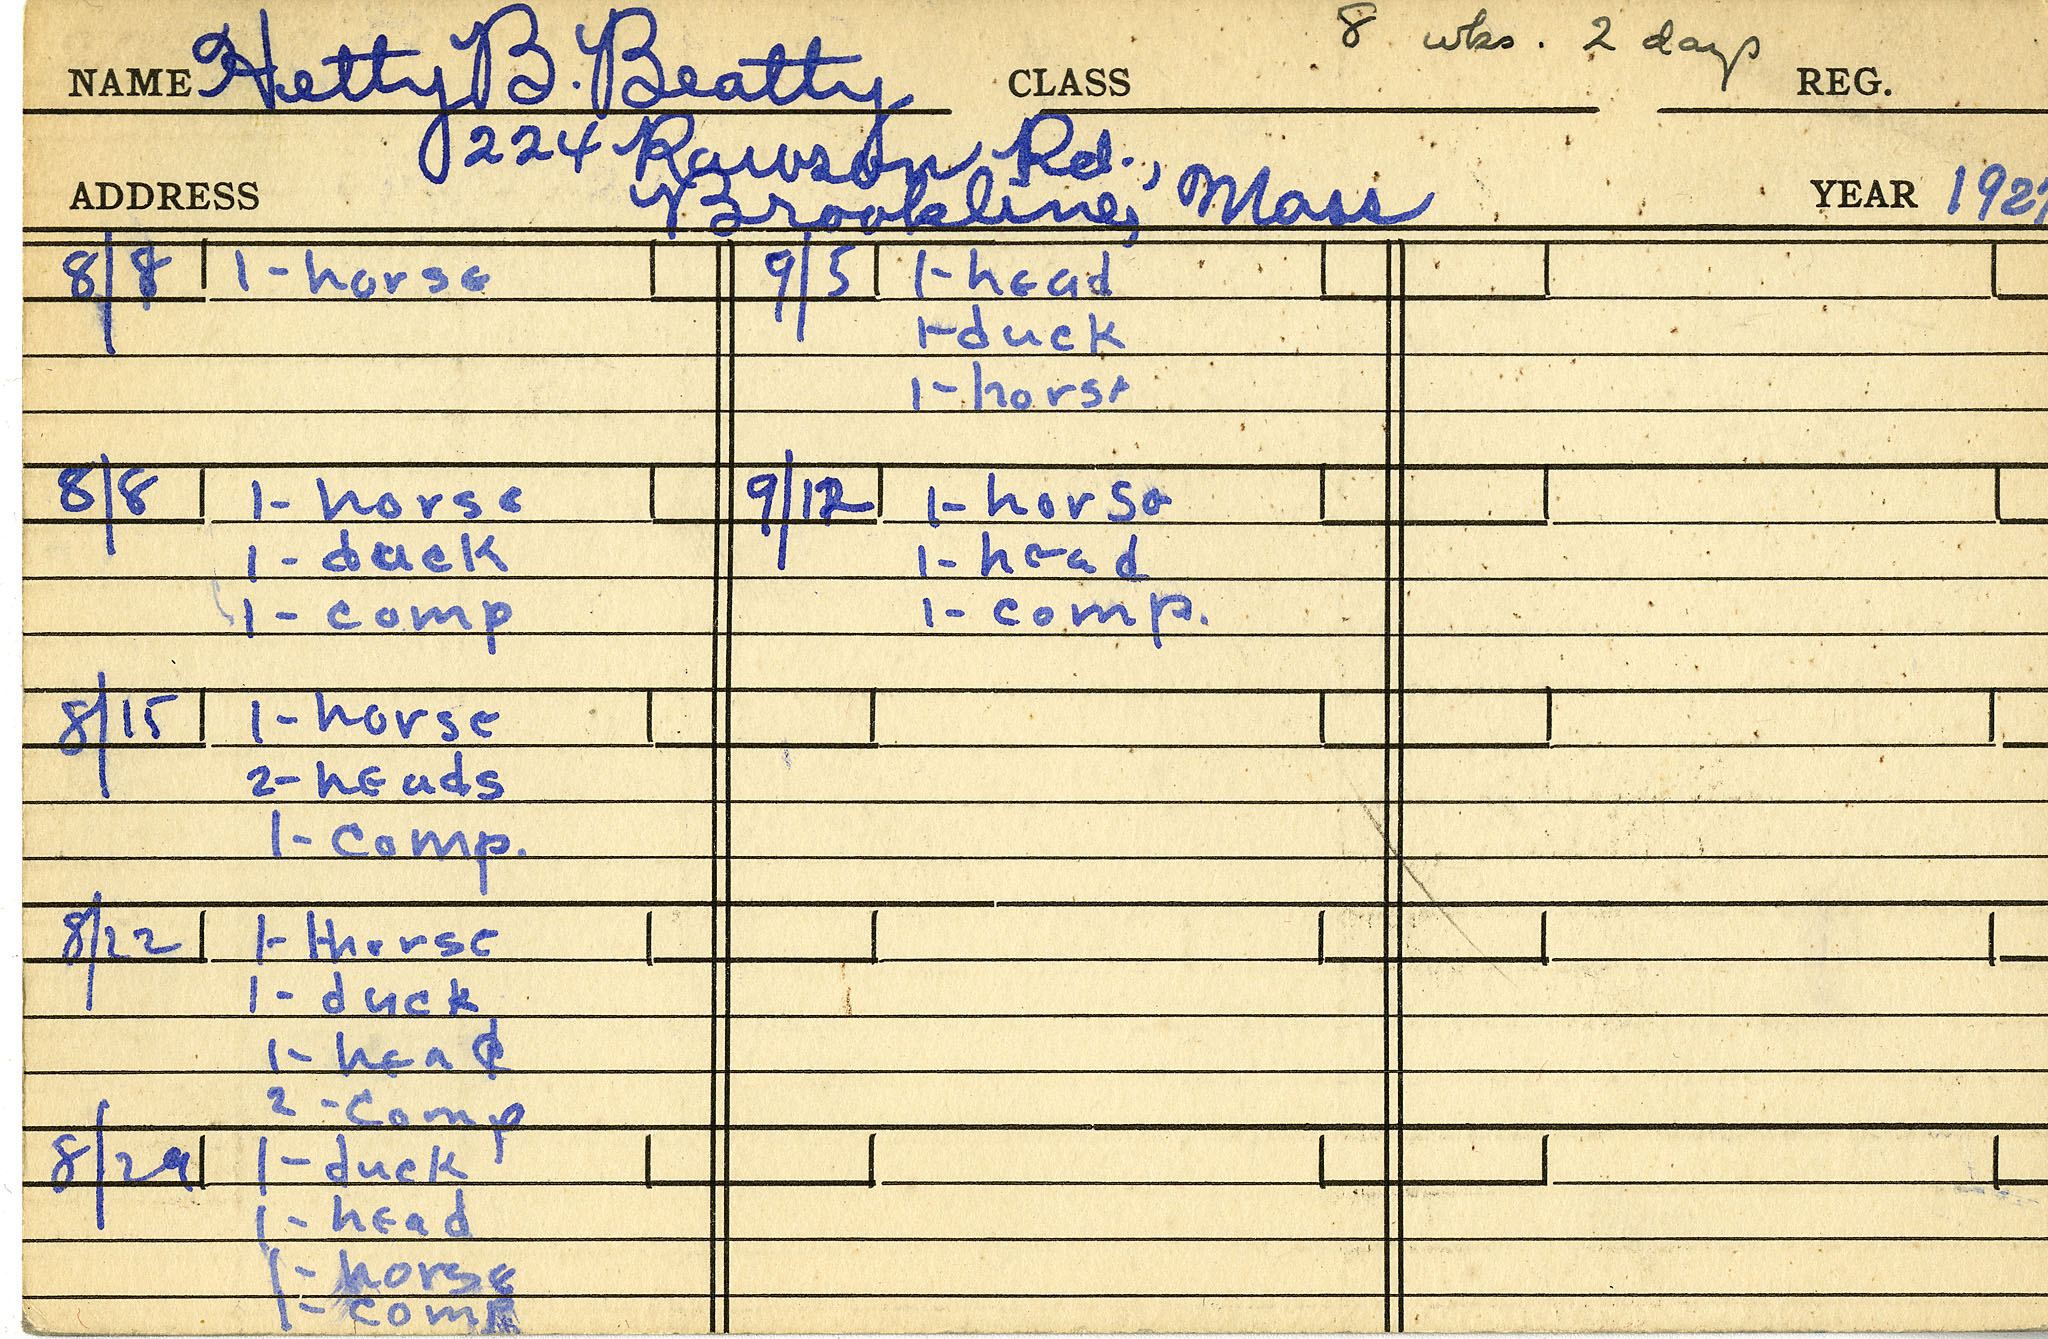 8 wks. 2 days
NAME Hetty B. Beatty CLASS REG.
224 Rawson Rd.,
ADDRESS Brookline, Mass YEAR
8/8 1-horse
8/8 1- horse
1- duck
1- comp
8/15 1-horse
2-heads
1-comp.
8/22 1-horse
1-duck
1-head
2-comp
8/29 1-duck
1-head
1-horse
1-comp
9/5 1-head
1-duck
1-horse
9/12 1-horse
1-head
1-comp.